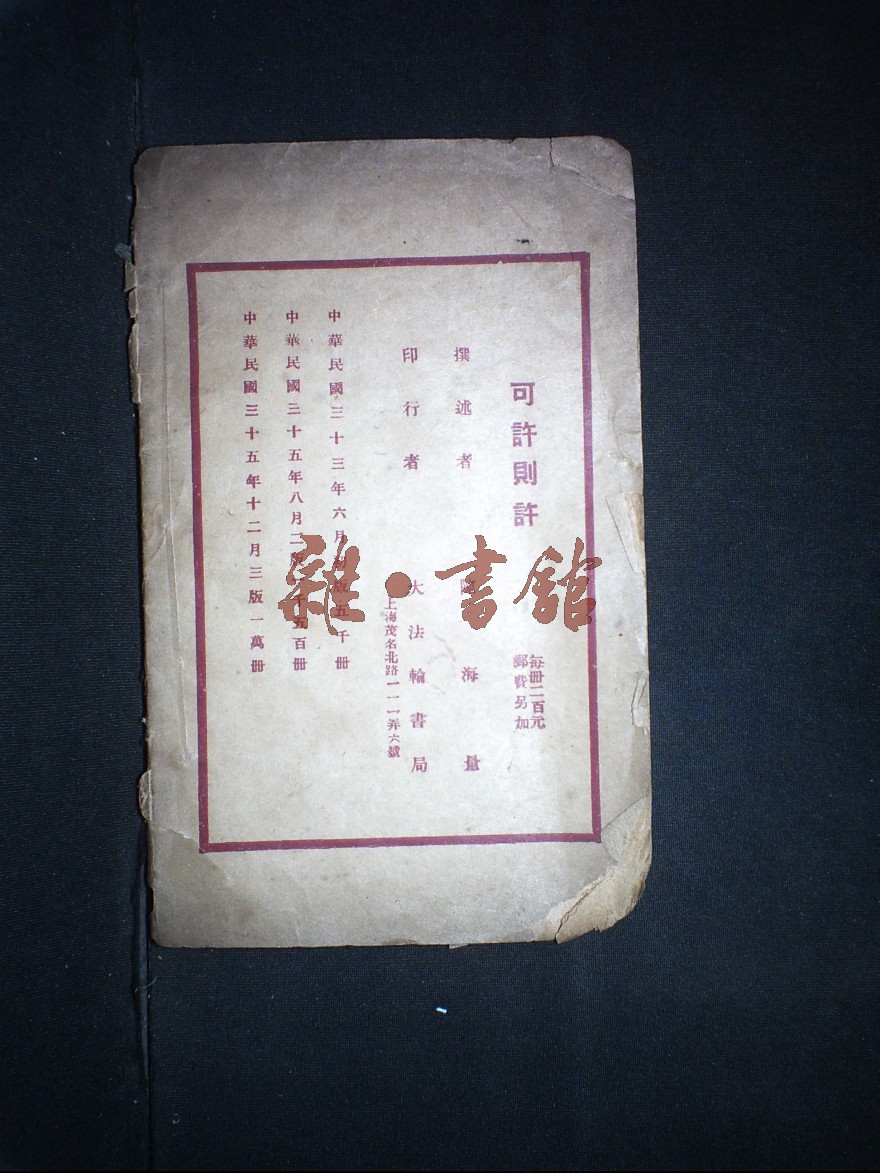 可許則許
每冊二百元
郵費另加
撰述者 海量
印行者 大法輪書局
上海茂名北路一一一弄六號
中華民國三十三年六月初版五千冊
中華民國三十五年八月二版 千五百冊
中華民國三十五年十二月三版一萬冊
雜·書館